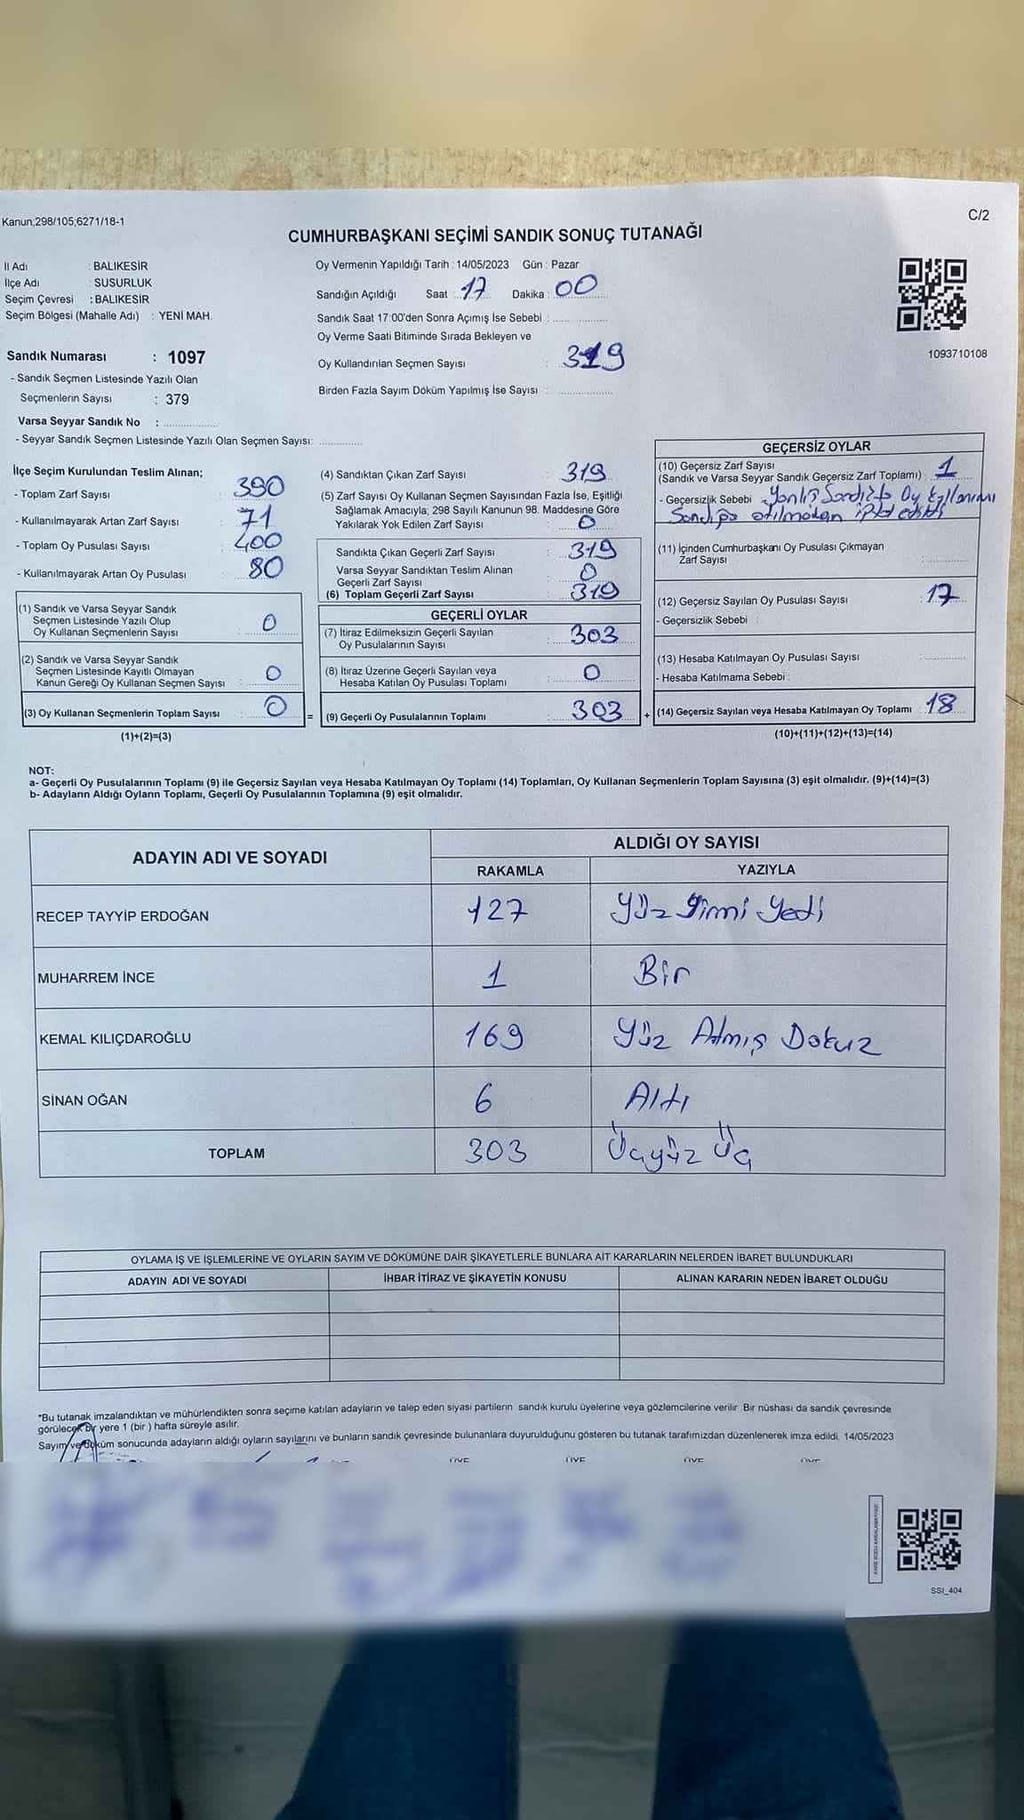 Kanun;298/105;6271/18-1
C/2
CUMHURBAŞKANI SEÇİMİ SANDIK SONUÇ TUTANAĞI
İl Adı : BALIKESİR
İlçe Adı : SUSURLUK
Seçim Çevresi : BALIKESİR
Seçim Bölgesi (Mahalle Adı) : YENİ MAH.
Sandık Numarası : 1097
- Sandık Seçmen Listesinde Yazılı Olan
Seçmenlerin Sayısı : 379
Varsa Seyyar Sandık No :
- Seyyar Sandık Seçmen Listesinde Yazılı Olan Seçmen Sayısı:
Oy Vermenin Yapıldığı Tarih : 14/05/2023 Gün : Pazar
Sandığın Açıldığı Saat : 17 Dakika : 00
Sandık Saat 17:00'den Sonra Açımış İse Sebebi :
Oy Verme Saati Bitiminde Sırada Bekleyen ve
Oy Kullandırılan Seçmen Sayısı : 319
Birden Fazla Sayım Döküm Yapılmış İse Sayısı :
1093710108
İlçe Seçim Kurulundan Teslim Alınan;
- Toplam Zarf Sayısı : 390
- Kullanılmayarak Artan Zarf Sayısı : 71
- Toplam Oy Pusulası Sayısı : 400
- Kullanılmayarak Artan Oy Pusulası : 80
(1) Sandık ve Varsa Seyyar Sandık
Seçmen Listesinde Yazılı Olup
Oy Kullanan Seçmenlerin Sayısı : 0
(2) Sandık ve Varsa Seyyar Sandık
Seçmen Listesinde Kayıtlı Olmayan
Kanun Gereği Oy Kullanan Seçmen Sayısı : 0
(3) Oy Kullanan Seçmenlerin Toplam Sayısı : 0
(1)+(2)=(3)
(4) Sandıktan Çıkan Zarf Sayısı : 319
(5) Zarf Sayısı Oy Kullanan Seçmen Sayısından Fazla İse, Eşitliği
Sağlamak Amacıyla; 298 Sayılı Kanunun 98. Maddesine Göre
Yakılarak Yok Edilen Zarf Sayısı : 0
Sandıkta Çıkan Geçerli Zarf Sayısı : 319
Varsa Seyyar Sandıktan Teslim Alınan
Geçerli Zarf Sayısı : 0
(6) Toplam Geçerli Zarf Sayısı : 319
GEÇERLİ OYLAR
(7) İtiraz Edilmeksizin Geçerli Sayılan
Oy Pusulalarının Sayısı : 303
(8) İtiraz Üzerine Geçerli Sayılan veya
Hesaba Katılan Oy Pusulası Toplamı : 0
= (9) Geçerli Oy Pusulalarının Toplamı : 303 +
GEÇERSİZ OYLAR
(10) Geçersiz Zarf Sayısı
(Sandık ve Varsa Seyyar Sandık Geçersiz Zarf Toplamı) : 1
- Geçersizlik Sebebi : Yanlış Sandıkta Oy Kullanımı
Sandığa atılmadan iptal edildi
(11) İçinden Cumhurbaşkanı Oy Pusulası Çıkmayan
Zarf Sayısı :
(12) Geçersiz Sayılan Oy Pusulası Sayısı : 17
- Geçersizlik Sebebi :
(13) Hesaba Katılmayan Oy Pusulası Sayısı :
- Hesaba Katılmama Sebebi :
(14) Geçersiz Sayılan veya Hesaba Katılmayan Oy Toplamı : 18
(10)+(11)+(12)+(13)=(14)
NOT:
a- Geçerli Oy Pusulalarının Toplamı (9) ile Geçersiz Sayılan veya Hesaba Katılmayan Oy Toplamı (14) Toplamları, Oy Kullanan Seçmenlerin Toplam Sayısına (3) eşit olmalıdır. (9)+(14)=(3)
b- Adayların Aldığı Oyların Toplamı, Geçerli Oy Pusulalarının Toplamına (9) eşit olmalıdır.
ADAYIN ADI VE SOYADI
ALDIĞI OY SAYISI
RAKAMLA YAZIYLA
RECEP TAYYİP ERDOĞAN 127 Yüz Yirmi Yedi
MUHARREM İNCE 1 Bir
KEMAL KILIÇDAROĞLU 169 Yüz Atmış Dokuz
SİNAN OĞAN 6 Altı
TOPLAM 303 Üçyüz Üç
OYLAMA İŞ VE İŞLEMLERİNE VE OYLARIN SAYIM VE DÖKÜMÜNE DAİR ŞİKAYETLERLE BUNLARA AİT KARARLARIN NELERDEN İBARET BULUNDUKLARI
ADAYIN ADI VE SOYADI İHBAR İTİRAZ VE ŞİKAYETİN KONUSU ALINAN KARARIN NEDEN İBARET OLDUĞU
*Bu tutanak imzalandıktan ve mühürlendikten sonra seçime katılan adayların ve talep eden siyasi partilerin sandık kurulu üyelerine veya gözlemcilerine verilir. Bir nüshası da sandık çevresinde
görülecek bir yere 1 (bir ) hafta süreyle asılır.
Sayım ve döküm sonucunda adayların aldığı oyların sayılarını ve bunların sandık çevresinde bulunanlara duyurulduğunu gösteren bu tutanak tarafımızdan düzenlenerek imza edildi. 14/05/2023
ÜYE ÜYE ÜYE ÜYE
SSI_404